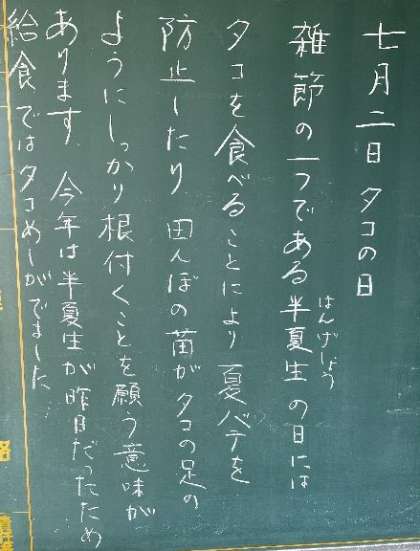 七月二日 タコの日
雑節の一つである半夏生の日には
はんげしょう
タコを食べることにより夏バテを
防止したり 田んぼの苗がタコの足の
ようにしっかり根付くことを願う意味が
あります 今年は半夏生が昨日だったため
給食ではタコめしがでました